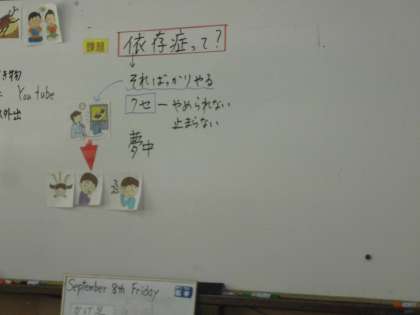 課題
依存症って?
そればっかりやる
クセーやめられない
止まらない
夢中
You tube
外出
September 8th Friday